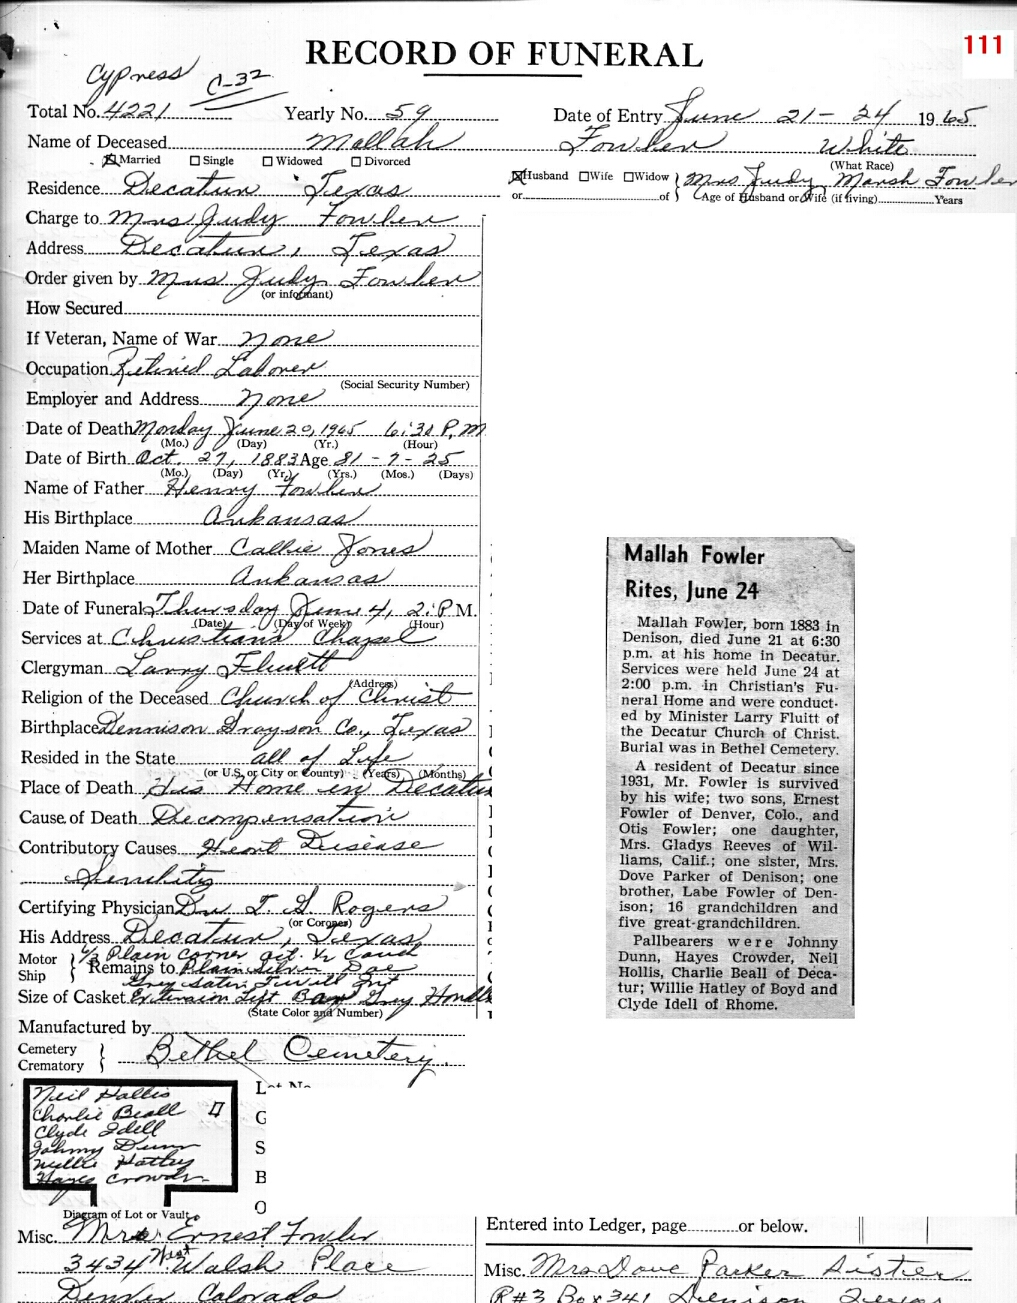 111
RECORD OF FUNERAL
Cypress C-32
Total No. 4221 Yearly No. 59 Date of Entry June 21-24 1965
Name of Deceased Mallah Fowler White
(What Race)
Married Single Widowed Divorced
Husband Wife Widow } Mrs Judy Marsh Fowler
or of Age of Husband or Wife (if living) Years
Residence Decatur Texas
Charge to Mrs Judy Fowler
Address Decatur, Texas
Order given by Mrs Judy Fowler
(or informant)
How Secured
If Veteran, Name of War None
Occupation Retired Laborer
(Social Security Number)
Employer and Address None
Date of Death Monday June 20, 1965 6:30 P.M
(Mo.) (Day) (Yr.) (Hour)
Date of Birth Oct. 27, 1883 Age 81-7-25
(Mo.) (Day) (Yr.) (Yrs.) (Mos.) (Days)
Name of Father Henry Fowler
His Birthplace Arkansas
Maiden Name of Mother Callie Jones
Her Birthplace Arkansas
Date of Funeral Thursday June 4, 2: P.M.
(Date) (Day of Week) (Hour)
Services at Christians Chapel
Clergyman Larry Fluett
(Address)
Religion of the Deceased Church of Christ
Birthplace Dennison Grayson Co., Texas
Resided in the State all of Life
(or U.S. or City or County) (Years) (Months)
Place of Death His Home in Decatur
Cause of Death Decompensation
Contributory Causes Heart Disease
Senility
Certifying Physician Dr T. G. Rogers
(or Coroner)
His Address Decatur, Texas
Motor } 1/2 Plain Corner 1/2 Couch
Ship Remains to Plain Silver
Grey Satin Twill Int
Size of Casket Extension Lift Bar Gray Handles
(State Color and Number)
Manufactured by
Cemetery } Bethel Cemetery
Crematory
Neil Hallis
Charlie Beall
Clyde Idell
Johnny Dunn
Willie Hatley
Hayes Crowder
Lot No
G
S
B
O
Diagram of Lot or Vault
Misc. Mrs Ernest Fowler
3434 West Walsh Place
Denver Colorado
Mallah Fowler
Rites, June 24
Mallah Fowler, born 1883 in
Denison, died June 21 at 6:30
p.m. at his home in Decatur.
Services were held June 24 at
2:00 p.m. in Christian's Fu-
neral Home and were conduct-
ed by Minister Larry Fluitt of
the Decatur Church of Christ.
Burial was in Bethel Cemetery.
A resident of Decatur since
1931, Mr. Fowler is survived
by his wife; two sons, Ernest
Fowler of Denver, Colo., and
Otis Fowler; one daughter,
Mrs. Gladys Reeves of Wil-
liams, Calif.; one sister, Mrs.
Dove Parker of Denison; one
brother, Labe Fowler of Den-
ison; 16 grandchildren and
five great-grandchildren.
Pallbearers were Johnny
Dunn, Hayes Crowder, Neil
Hollis, Charlie Beall of Deca-
tur; Willie Hatley of Boyd and
Clyde Idell of Rhome.
Entered into Ledger, page or below.
Misc. Mrs Dove Parker Sister
R#3 Box 341 Denison Texas